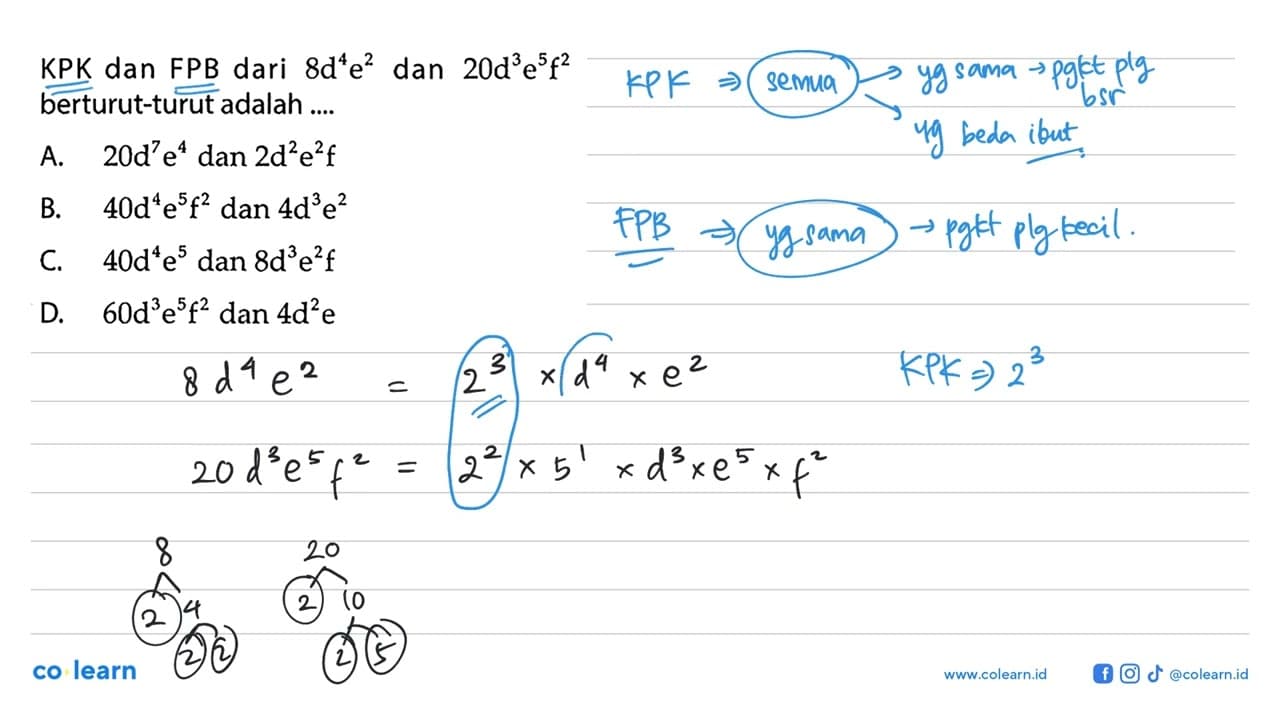 KPK dan FPB dari 8d⁴e² dan 20d³e⁵f²
berturut-turut adalah ....
A. 20d⁷e⁴ dan 2d²e²f
B. 40d⁴e⁵f² dan 4d³e²
C. 40d⁴e⁵ dan 8d³e²f
D. 60d³e⁵f² dan 4d²e
KPK ⇒ semua → yg sama → pgkt plg
bsr
yg beda ibut
FPB ⇒ yg sama → pgkt plg kecil.
8 d⁴ e² = 2³ × d⁴ × e²
KPK ⇒ 2³
20 d³ e⁵ f² = 2² × 5¹ × d³ × e⁵ × f²
8 20
2 4 2 10
2 2 2 5
co learn
www.colearn.id @colearn.id